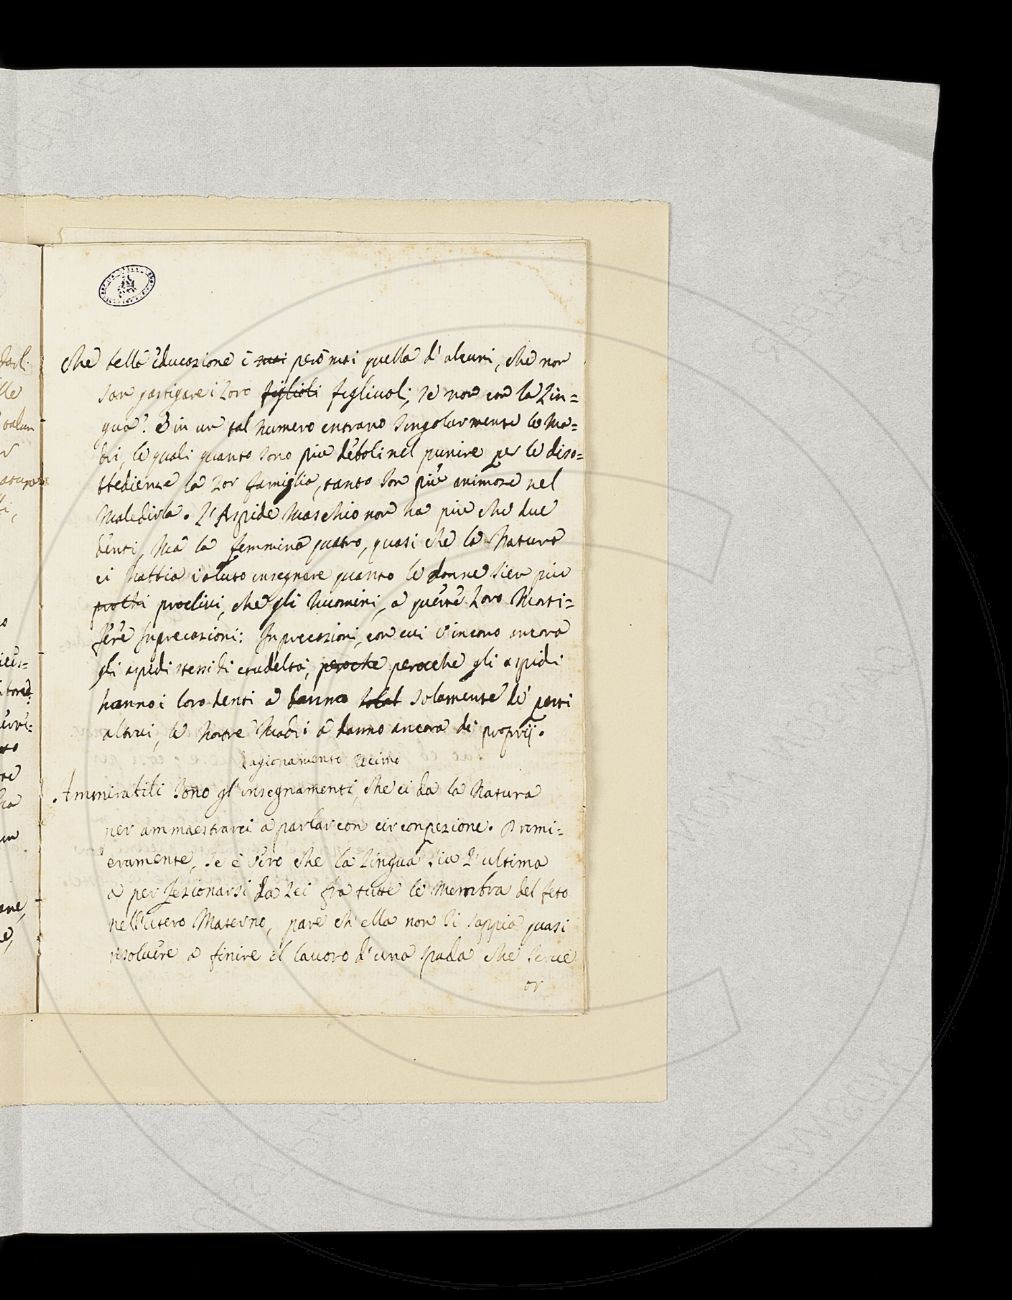 Che bella educazione è mai però mai quella d' alcuni, che non
san gastigare i loro figlioli figliuoli, se non con la lin=
gua? E in un tal numero entrano singolarmente le Ma=
dri, le quali quanto sono piu deboli nel punire per le diso=
bbedienze la lor famiglia, tanto son piu animose nel
maledirla. L'Aspide maschio non ha piu che due
denti, ma la femmina quatro, quasi che la Natura
ci habbia voluto insegnare quanto le donne sien piu
proclivi, che gli Huomini, a queste loro morti=
fere Inprecazioni: Inprecazioni, con cui vincono ancora
gli aspidi stessi di crudeltà, peroche perocche gli aspidi
hanno i loro denti a danno solal solamente de' parti
altrui, le nostre Madri a danno ancora di proprij.
Ragionamento Decimo
Ammirabili sono gl' insegnamenti, che ci da la Natura
per ammaestrarci a parlar con circonspezione. Primi=
eramente, se è vero che la Lingua sia l'ultima
a perfezionarsi da lei fra tutte le membra del feto
nell'utero Materno, pare ch' ella non si sappia quasi
risoluere a finire il lauoro d'una spada che serue
or